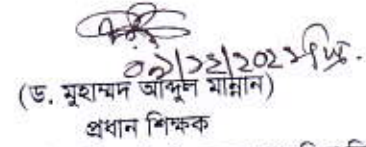 ০৯/১২/২০২১খ্রি.
(ড. মুহাম্মদ আব্দুল মান্নান)
প্রধান শিক্ষক